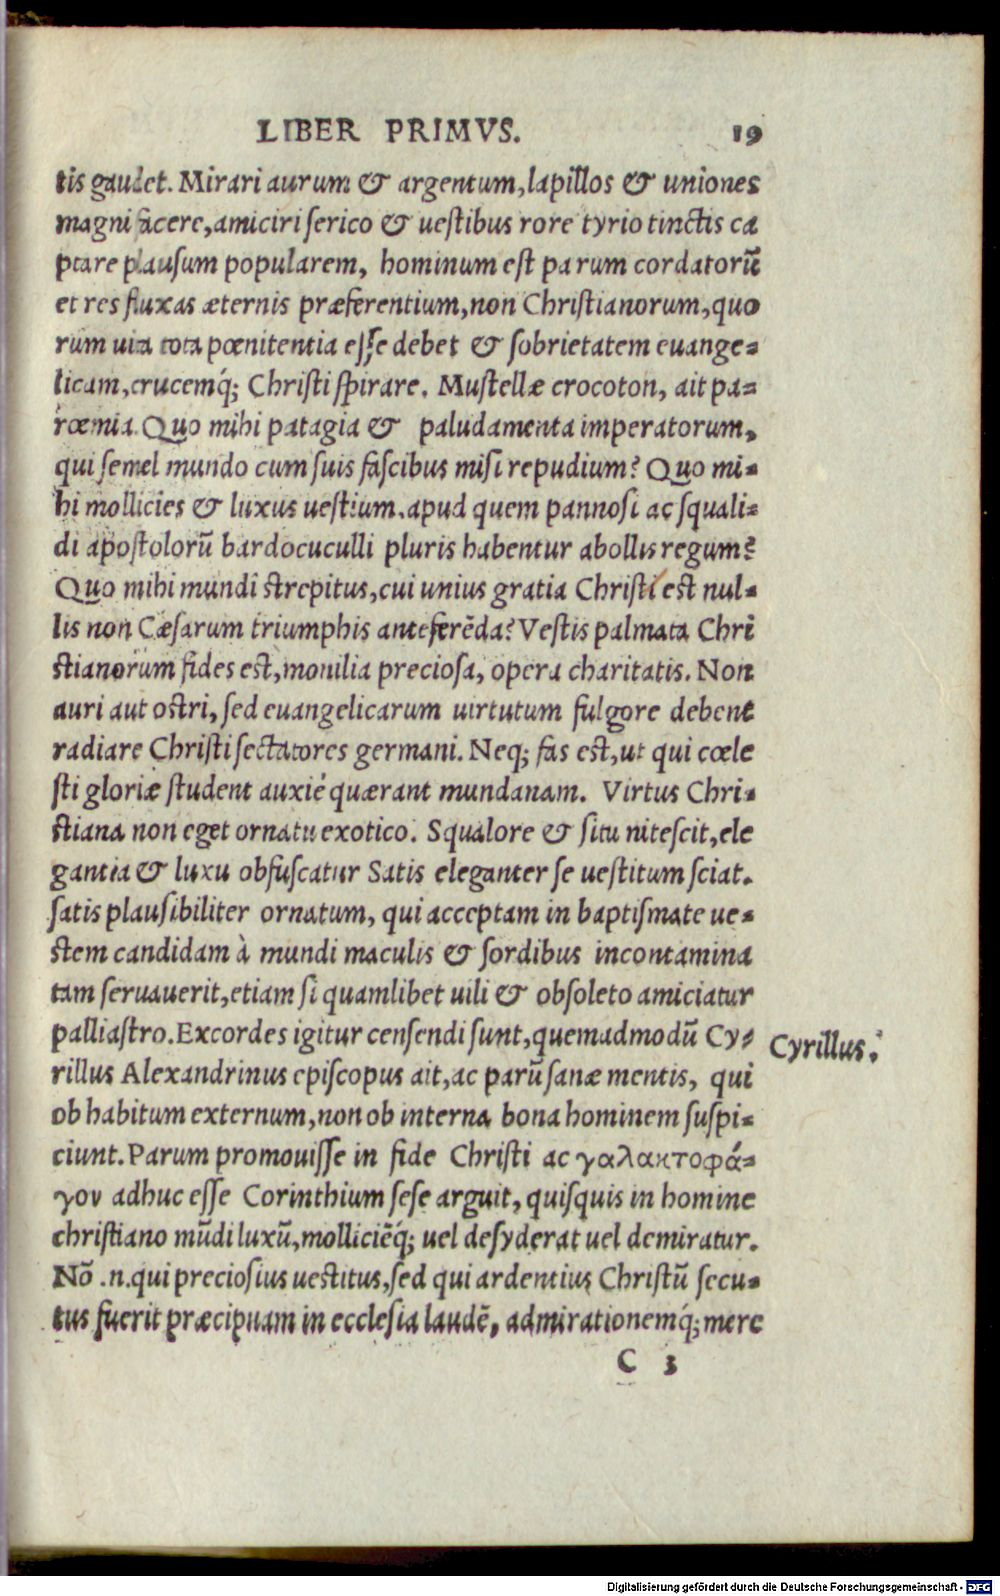 LIBER PRIMVS. 19
tis gaudet. Mirari aurum & argentum, lapillos & uniones
magni facere, amiciri serico & uestibus rore tyrio tinctis ca
ptare plausum popularem, hominum est parum cordatorū
et res fluxas æternis præferentium, non Christianorum, quo
rum uita tota pœnitentia esse debet & sobrietatem euange-
licam, crucemq́; Christi spirare. Mustellæ crocoton, ait pa-
rœmia. Quo mihi patagia & paludamenta imperatorum,
qui semel mundo cum suis fascibus misi repudium? Quo mi-
hi mollicies & luxus uestium, apud quem pannosi ac squali-
di apostolorū bardocuculli pluris habentur abollis regum?
Quo mihi mundi strepitus, cui unius gratia Christi est nul-
lis non Cæsarum triumphis anteferēda? Vestis palmata Chri
stianorum fides est, monilia preciosa, opera charitatis. Non
auri aut ostri, sed euangelicarum uirtutum fulgore debent
radiare Christi sectatores germani. Neq; fas est, ut qui cœle
sti gloriæ student auxié quærant mundanam. Virtus Chri-
stiana non eget ornatu exotico. Squalore & situ nitescit, ele
gantia & luxu obfuscatur Satis eleganter se uestitum sciat.
satis plausibiliter ornatum, qui acceptam in baptismate ue-
stem candidam à mundi maculis & sordibus incontamina
tam seruauerit, etiam si quamlibet uili & obsoleto amiciatur
palliastro. Excordes igitur censendi sunt, quemadmodū Cy-
Cyrillus.
rillus Alexandrinus episcopus ait, ac parū sanæ mentis, qui
ob habitum externum, non ob interna bona hominem suspi-
ciunt. Parum promouisse in fide Christi ac γαλακτοφά-
γον adhuc esse Corinthium sese arguit, quisquis in homine
christiano mūdi luxū, molliciēq́; uel desyderat uel demiratur.
Nō .n. qui preciosius uestitus, sed qui ardentius Christū secu-
tus fuerit præcipuam in ecclesia laudē, admirationemq́; mere
C 3
Digitalisierung gefördert durch die Deutsche Forschungsgemeinschaft - DFG